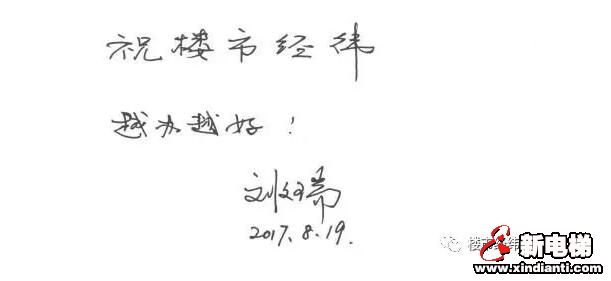 祝楼市经纬
越办越好！
2017.8.19.
新电梯
www.xindianti.com